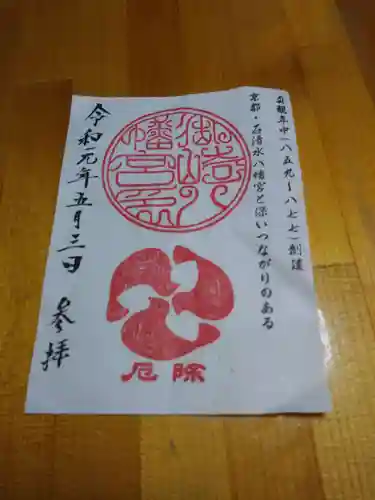 貞観年中(八五九〜八七七)創建
京都・石清水八幡宮と深いつながりのある
厄除
令和元年五月三日
参拝